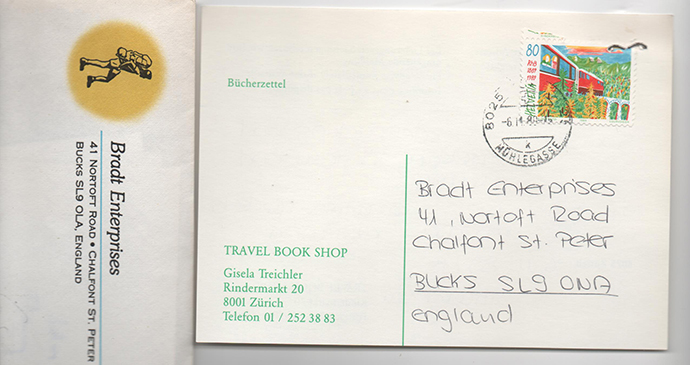 Bradt Enterprises
41 NORTOFT ROAD • CHALFONT ST. PETER
BUCKS SL9 OLA, ENGLAND
Bücherzettel
80
8025
-6.11.
MÜHLEGASSE
TRAVEL BOOK SHOP
Gisela Treichler
Rindermarkt 20
8001 Zürich
Telefon 01 / 252 38 83
Bradt Enterprises
41, Nortoft Road
Chalfont St. Peter
BUCKS SL9 ONA
england